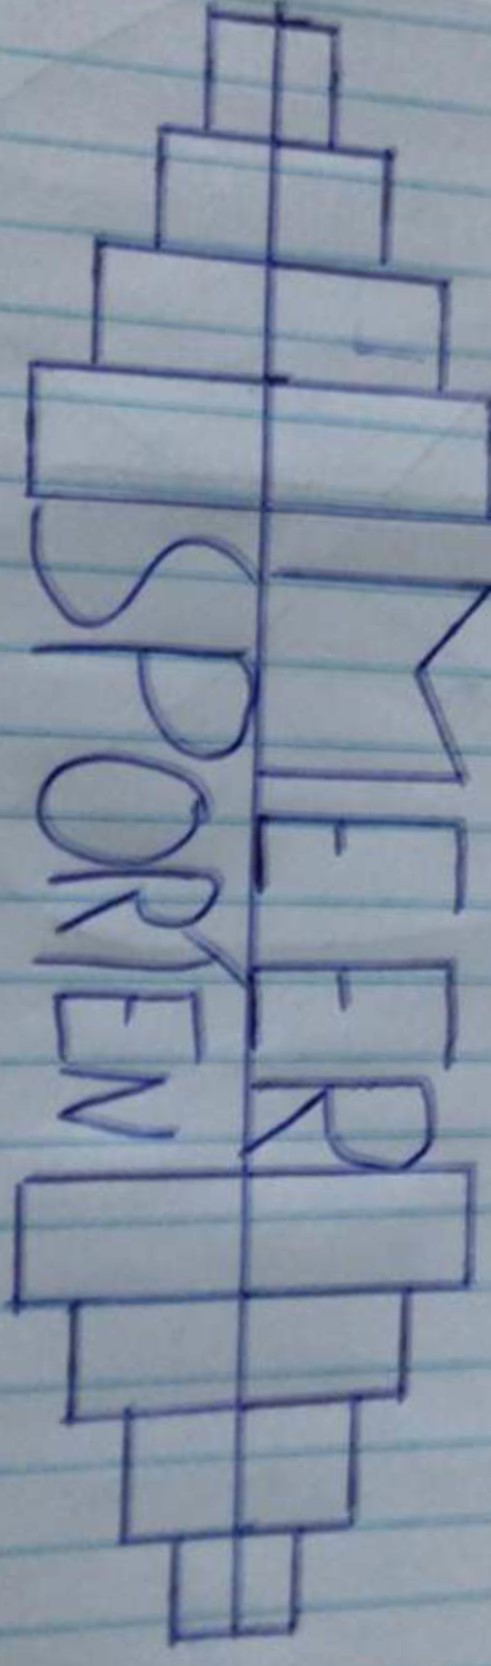 MEER
SPORTEN